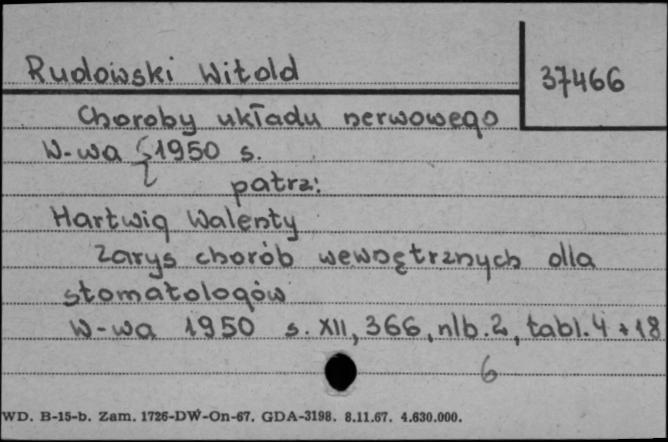 Rudowski Witold
37466
Choroby układu nerwowego
W-wa 1950 s.
patrz:
Hartwig Walenty
Zarys chorób wewnętrznych dla
stomatologów
W-wa 1950 s. XII, 366, nlb. 2, tabl. 4 + 18
6
WD. B-15-b. Zam. 1726-DW-On-67. GDA-3198. 8.11.67. 4.630.000.